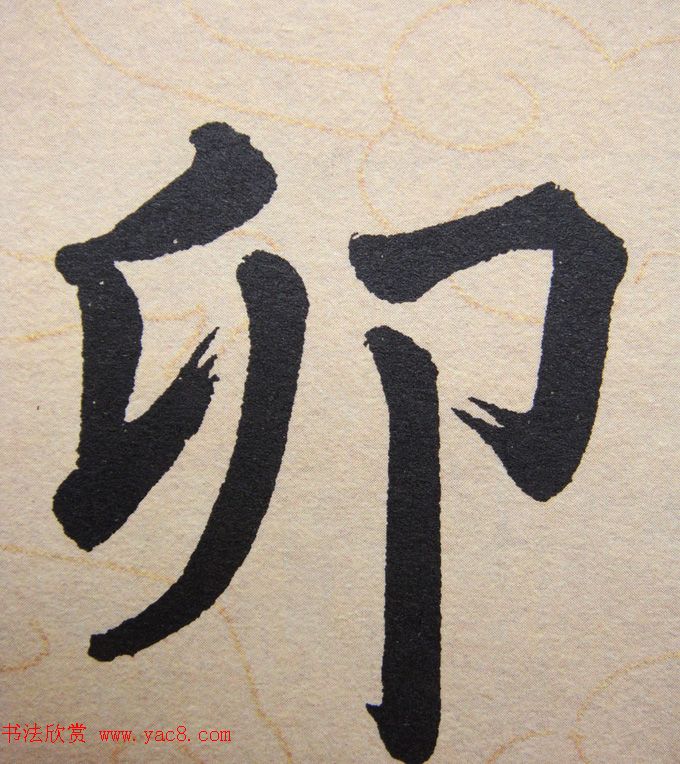 卯
书法欣赏 www.yac8.com